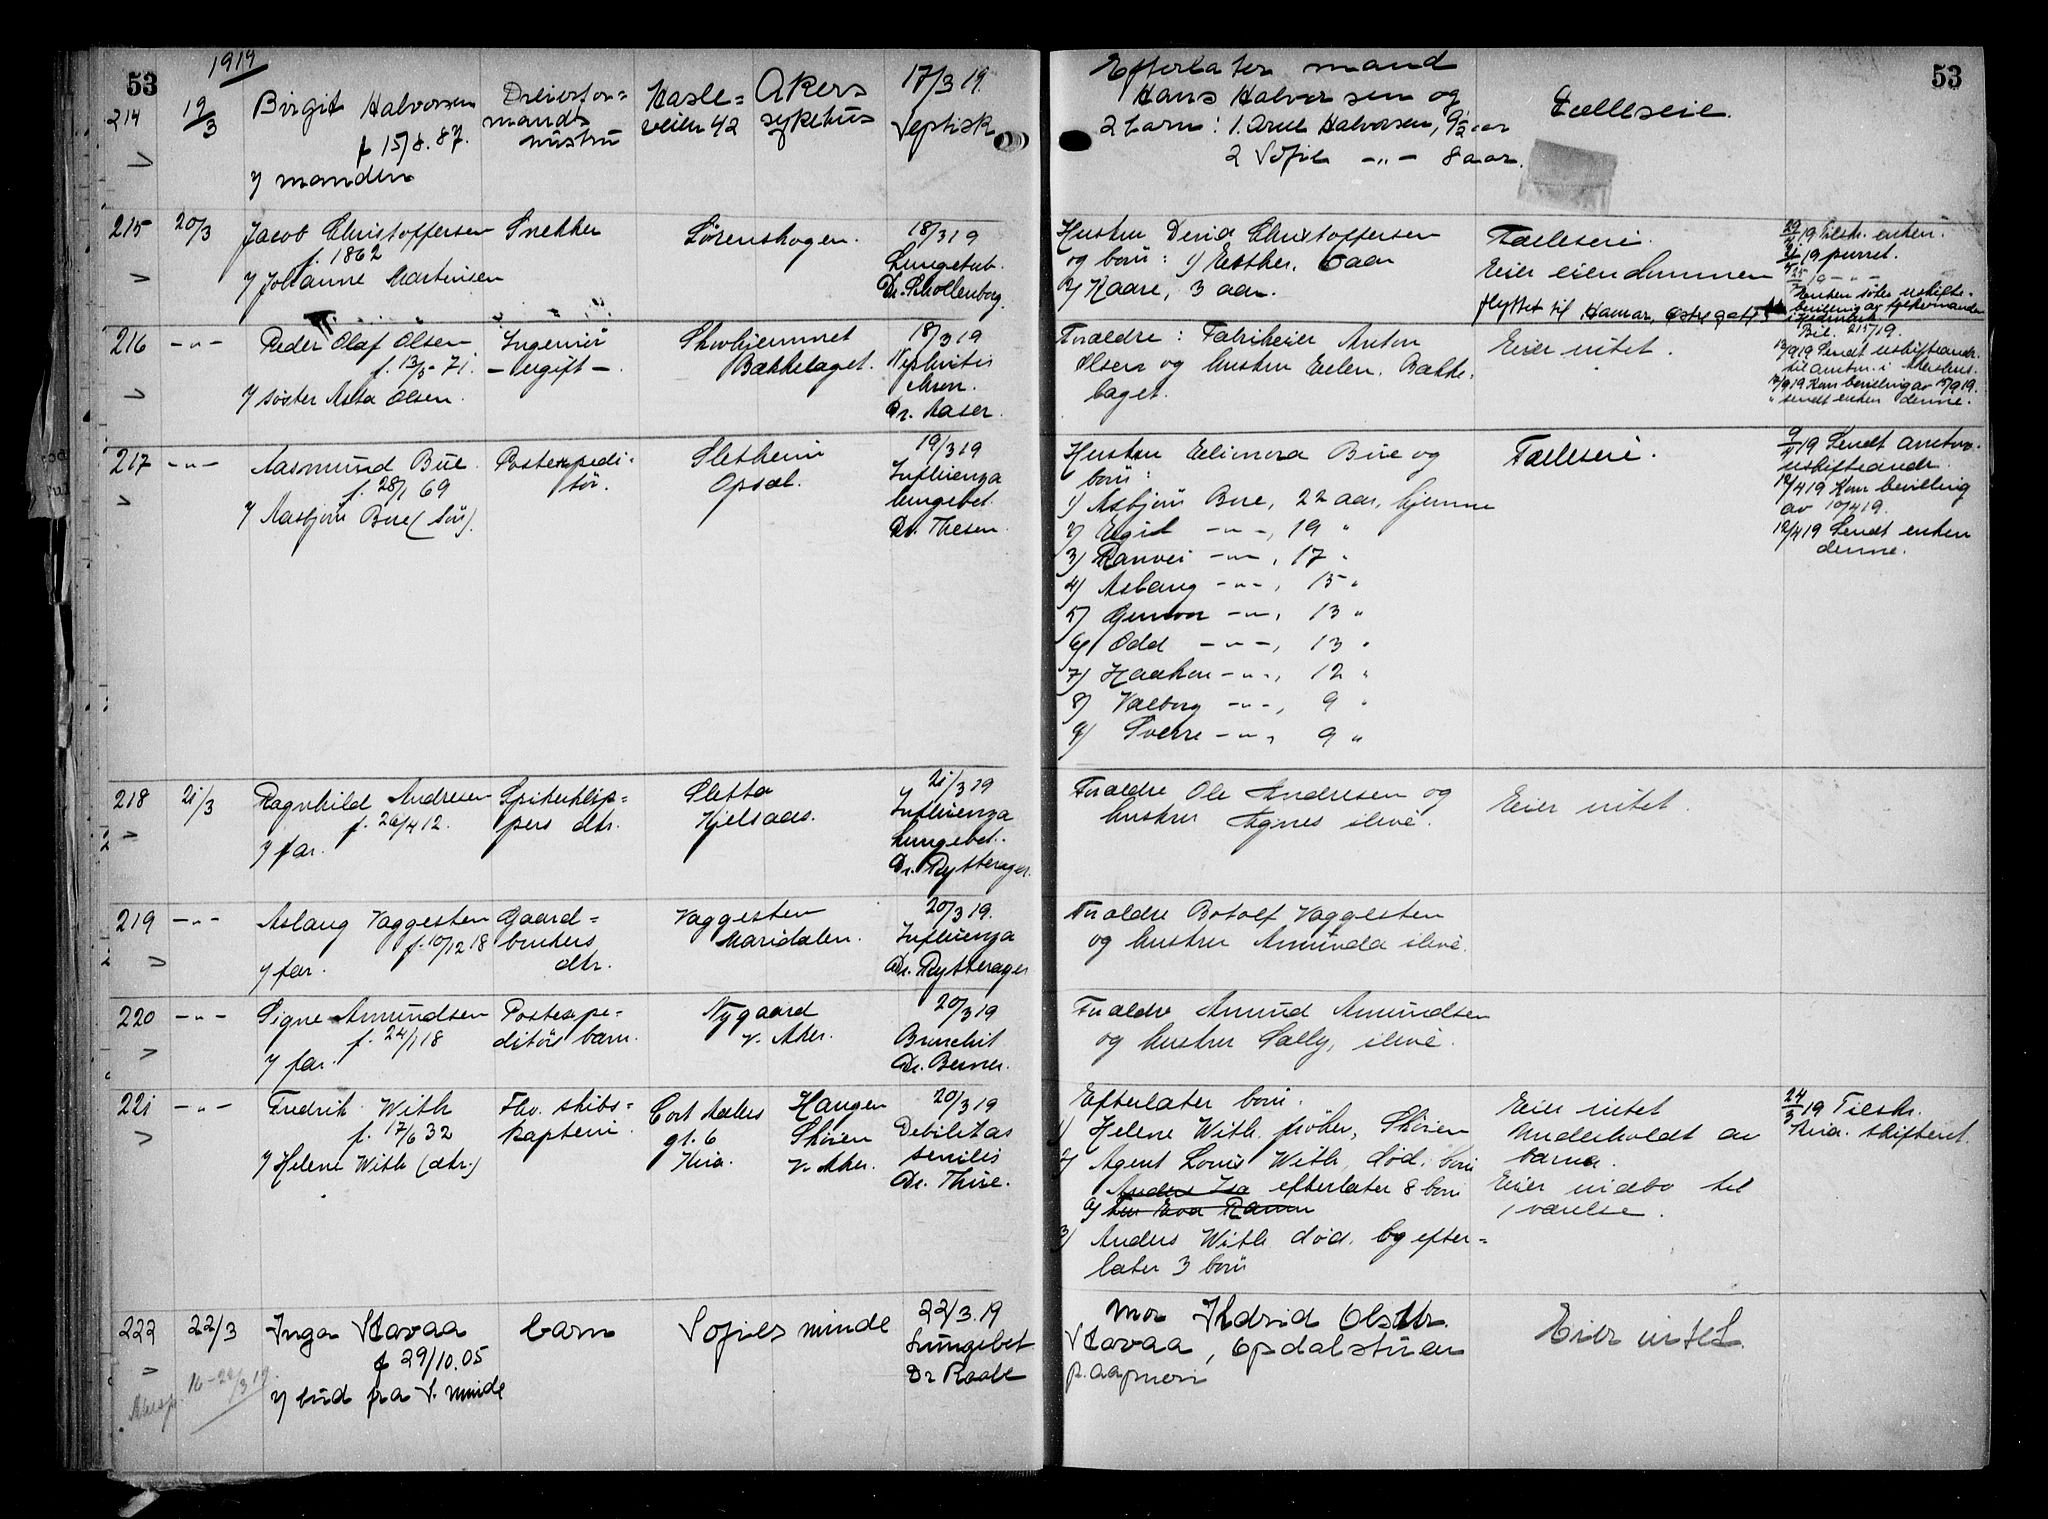 53
1919
214 19/3 Birgit Halvorsen
f 15/8. 87.
γ manden
mands
hustru
Hasle=
veien 42
Akers
sykehus
17/3 19.
Septisk
53
Efterlater mand
Hans Halvorsen og
2 barn: 1. Arne Halvorsen, 9 1/2 aar
2 Sofie -„- 8 aar.
Fælleseie.
215 20/3 Jacob Christoffersen
f. 1862
γ Johanne Martinsen
Snekker
Sørenskogen.
18/3 19
Lungetub.
Dr. Schollenborg.
Hustru Christoffersen
og børn: 1) Esther, 6 aar
2) Kaare, 3 aar.
Fælleseie.
Eier eiendommen
flyttet til Hamar,
19 Tilskr. enken.
19 purret.
Enken søkt uskifte-
216 -„- Peder Olaf Olsen
f. 13/5-71.
γ søster Asta Olsen.
Ingeniør
- ugift -
Skovhjemmet
Bækkelaget.
18/3 19
Nephritis
chron.
Dr. Aaser.
Forældre: Fabrikeier Anton
Olsen og hustru Elen. Bække-
laget.
Eier intet.
Bil. 215/19.
sendt enken denne.
217 -„- Aasmund Bue.
f. 28/1 69
γ Aasbjørn Bue (søn).
Postexpedi-
tør.
Sletheim
Opsal.
19/3 19
Influenza
lungebet.
Dr. Thesen.
Hustru Elionora Bue og
børn:
1) Asbjørn Bue, 22 aar, hjemme
2) Eigil -„-, 19 „
3) Ranvei -„-, 17 „
4) Aslaug -„-, 15 „
5) Gunvor -„-, 13 „
6) Odd -„-, 13 „
7) Haakon -„-, 12 „
8) Valborg -„-, 9 „
9) Sverre -„-, 9 „
Fælleseie.
9/4 19 Sendt amtm.
uskifteandr.
12/4 19 Kom bevilling
av 10/4 19.
12/4 19 Sendt enken
denne.
218 21/3 Ragnhild Andresen
f. 26/4 12.
γ far.
Spikerklip=
pers dtr.
Sletta
Kjelsaas.
21/3 19
Influenza
Lungebet.
Dr. Rytterager.
Forældre Ole Andresen og
hustru Agnes ilive.
Eier intet.
219 -„- Aslaug Vaggesten
f. 10/12 18
γ far.
Gaard=
brukers
dtr.
Vaggesten
Maridalen.
20/3 19.
Influenza
Dr. Rytterager
Forældre Botolf Vaggesten
og hustru Amunda ilive.
220 -„- Signe Amundsen
f. 24/1 18
γ far.
Postexpe-
ditørs barn.
Nygaard
v. Aker.
20/3 19
Bronchit
Dr. Berner.
Forældre Amund Amundsen
og hustru Sally, ilive.
221 -„- Fredrik With
f. 17/6 32
γ Helene With (dtr.)
Fhv. skibs-
kaptein.
Cort Adelers
gt. 6
Kria.
Haugen
Skøien
v. Aker.
20/3 19
Debilitas
senilis
Dr. Thue.
Efterlater børn.
1) Helene With frøken, Skøien
2) Agent Louis With, død.
efterlater 8 børn
3) Anders With død. og efter=
later 3 børn
Eier intet
Underholdt av
barna.
Eier indbo til
1 værelse.
24/3 19 Tilskr.
Kria. skifteret.
222 22/3 Inga Stavaa
f 29/10.05
γ bud fra S. minde
barn
Sofies minde
22/3.19
Lungebet
Dr Raabe
Mor Ildrid Olsdtr.
Stavaa, Opdalstuen
Eier intet.